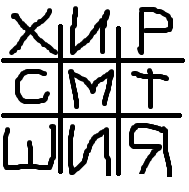 ХИР
СМТ
ШИЯ